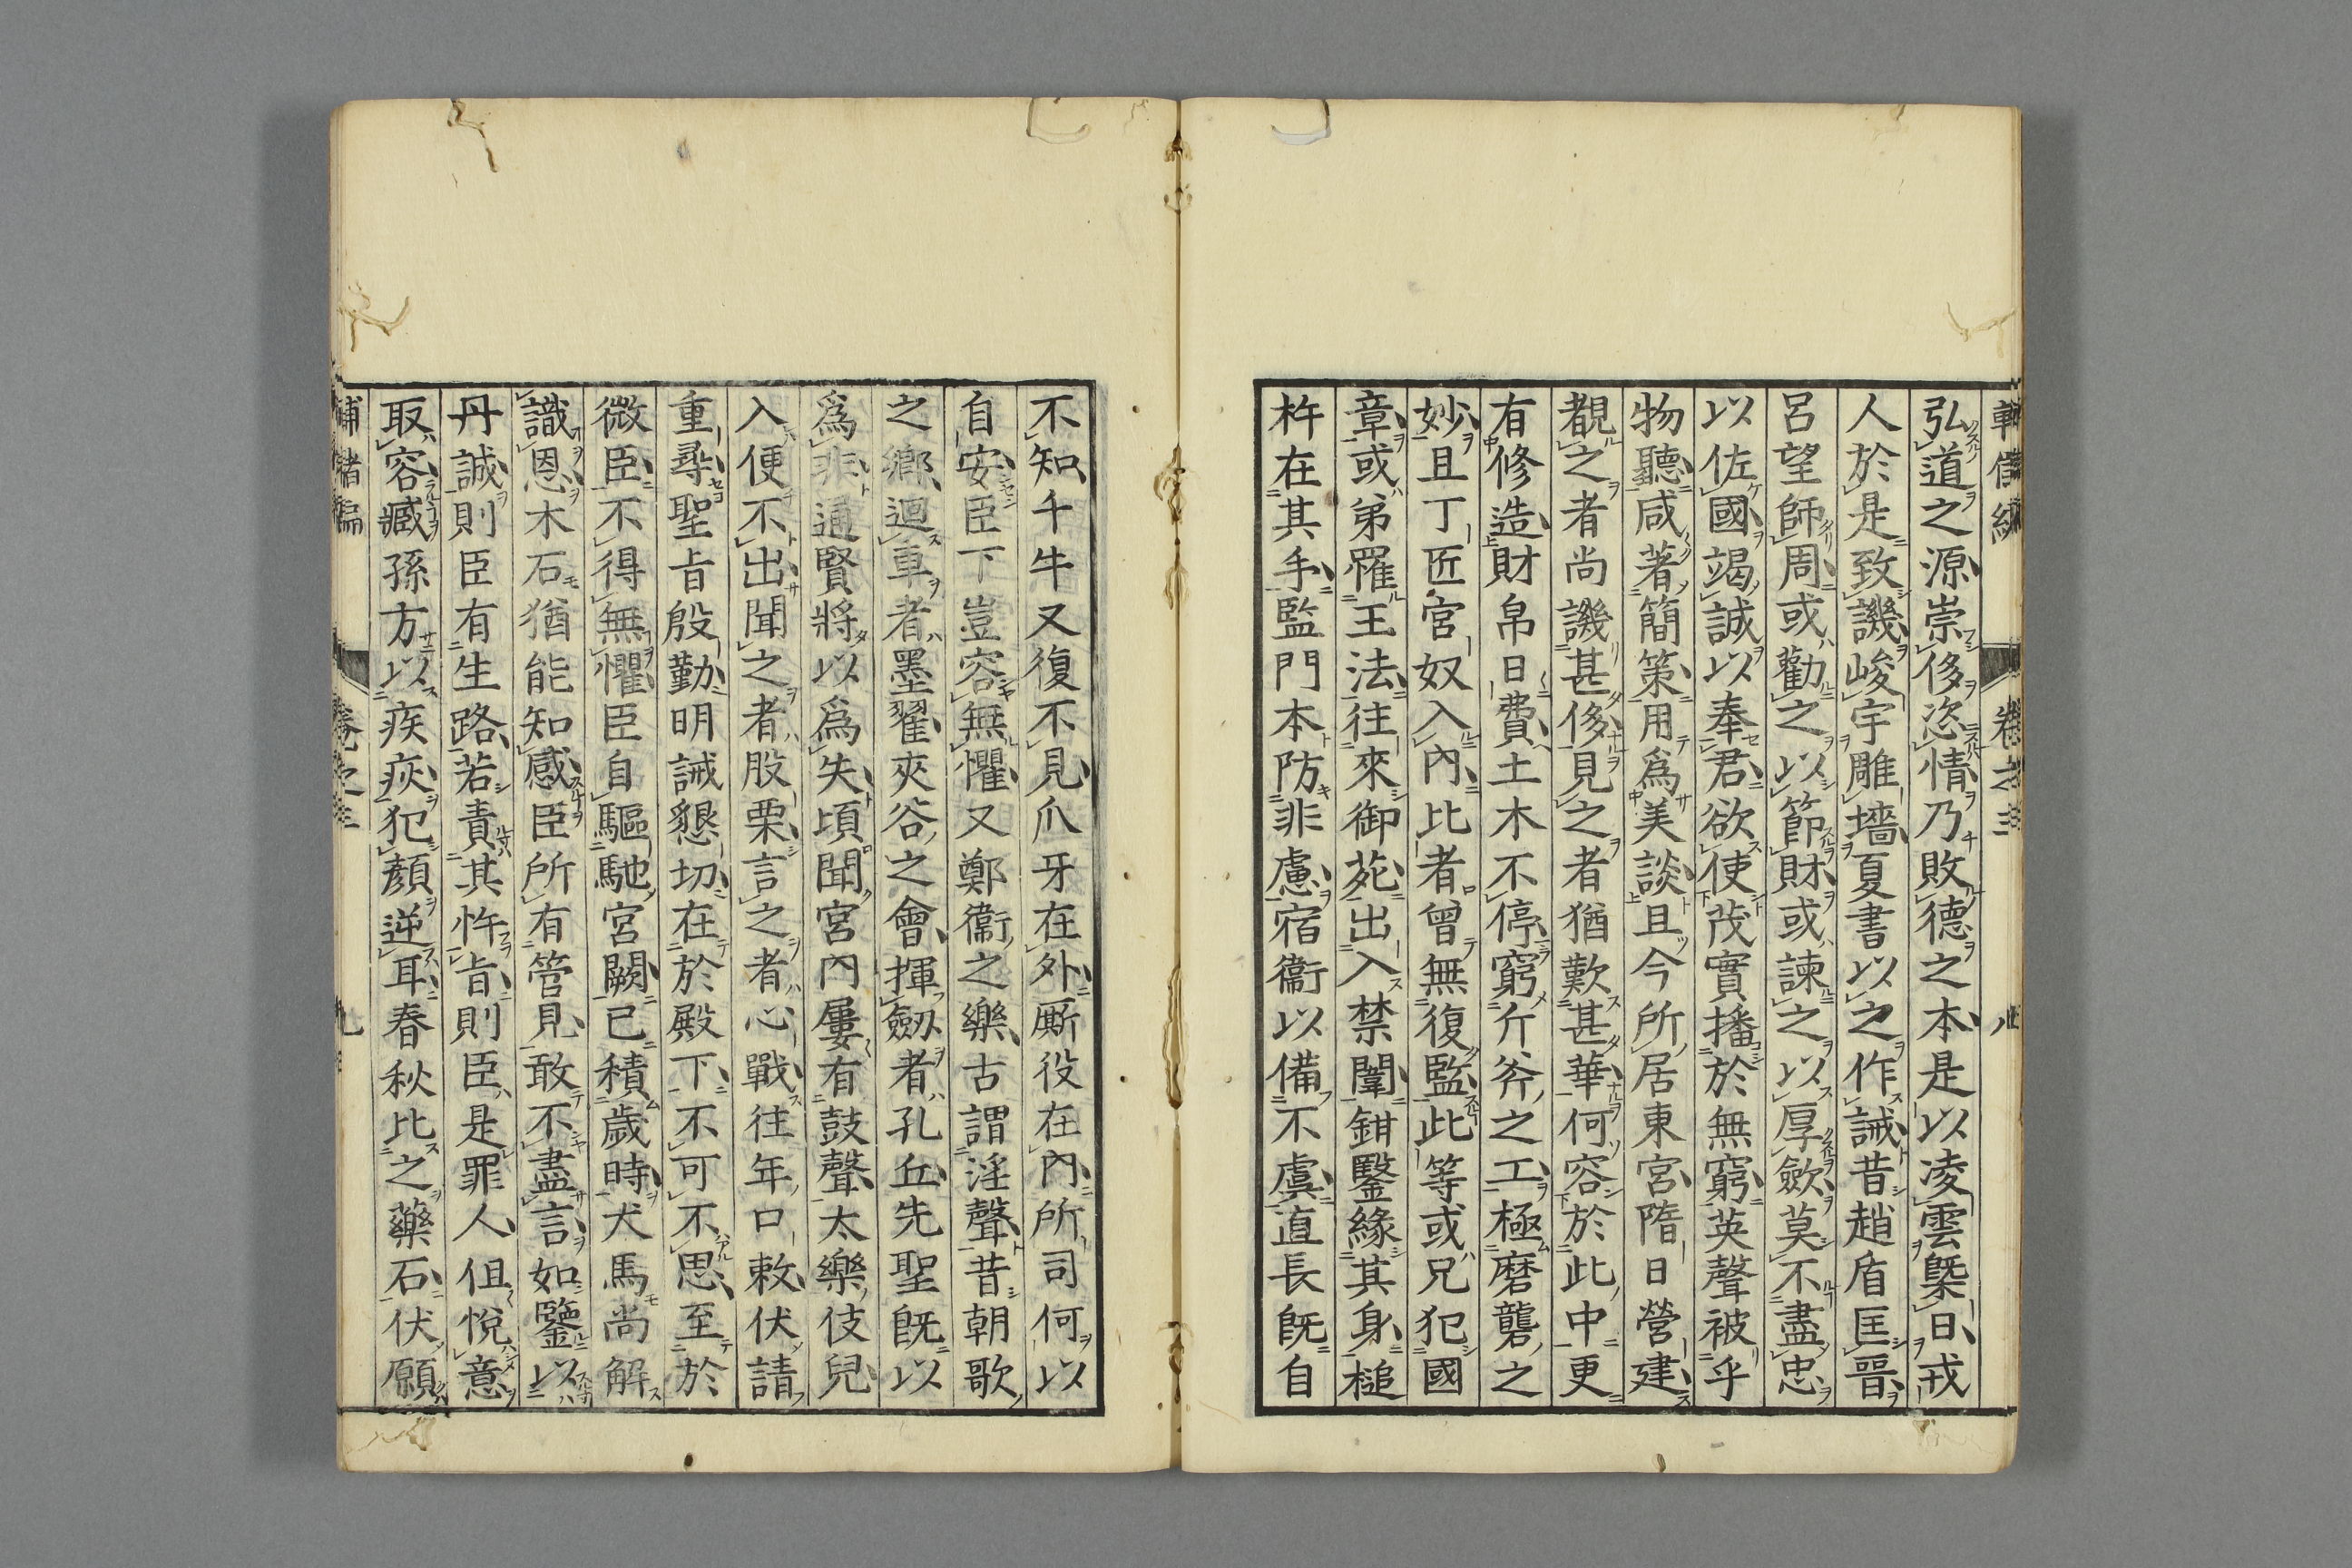 弘道之源崇侈恣情乃敗德之本是以凌雲槩日戎
人於是致譏峻宇雕墻夏書以之作誡昔趙盾匡晋
呂望師周或勸之以節財或諫之以厚歛莫不盡忠
以佐國竭誠以奉君欲使茂實播於無窮英聲被乎
物聽咸著簡策用爲美談且今所居東宮隋日營建
覩之者尚譏甚侈見之者猶歎甚華何容於此中更
有修造財帛日費土木不停窮斤斧之工極磨礱之
妙且丁匠宮奴入內比者曾無復監此等或兄犯國
章或弟罹王法往來御苑出入禁闈鉗鑿緣其身槌
杵在其手監門本防非慮宿衞以備不虞直長旣自
不知千牛又復不見爪牙在外厮役在內所司何以
自安臣下豈容無懼又鄭衞之樂古謂淫聲昔朝歌
之鄉迴車者墨翟夾谷之會揮劔者孔丘先聖旣以
爲非通賢將以爲失頃聞宮內屢有鼓聲太樂伎兒
入便不出聞之者股栗言之者心戰往年口敕伏請
重尋聖旨殷勤明誡懇切在於殿下不可不思至於
微臣不得無懼臣自驅馳宮闕已積歲時犬馬尚解
識恩木石猶能知感臣所有管見敢不盡言如鑒以
丹誠則臣有生路若責其忤旨則臣是罪人但悅意
取容臧孫方以疾疢犯顏逆耳春秋比之藥石伏願
卷之三